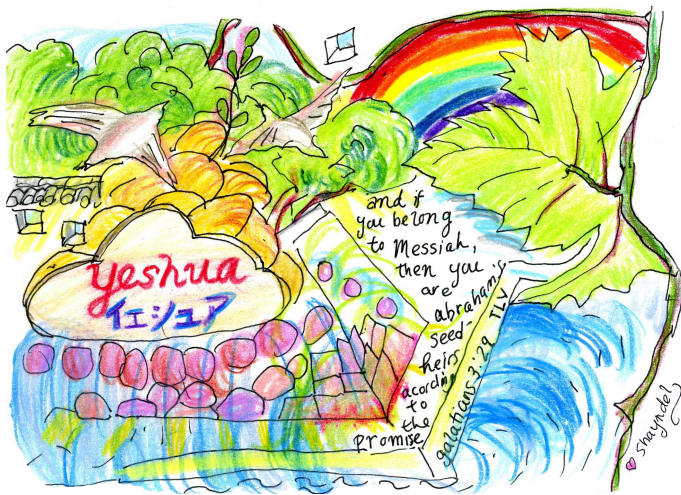 yeshua
イエシュア
and if
you belong
to Messiah,
then you
are
abraham's
seed-
heirs
acording
to
the
promise
galatians 3:29 TLV
shayndel